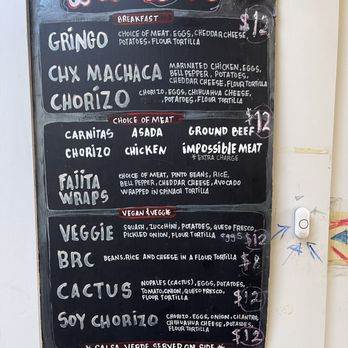 BREAKFAST
$12
GRINGO
CHOICE OF MEAT, EGGS, CHEDDAR CHEESE,
POTATOES, FLOUR TORTILLA
CHX MACHACA
MARINATED CHICKEN, EGGS,
BELL PEPPER, POTATOES,
CHEDDAR CHEESE, FLOUR TORTILLA
CHORIZO
CHORIZO, EGGS, CHIHUAHUA CHEESE,
POTATOES, FLOUR TORTILLA
CHOICE OF MEAT
$12
CARNITAS ASADA GROUND BEEF
CHORIZO CHICKEN IMPOSSIBLE MEAT
* EXTRA CHARGE
FAJITA
WRAPS
CHOICE OF MEAT, PINTO BEANS, RICE,
BELL PEPPER, CHEDDAR CHEESE, AVOCADO
WRAPPED IN SPINACH TORTILLA
VEGAN & VEGGIE
VEGGIE
SQUASH, ZUCCHINI, POTATOES, QUESO FRESCO,
PICKLED ONION, FLOUR TORTILLA
eggs
$12
BRC
BEANS, RICE AND CHEESE IN A FLOUR TORTILLA
CACTUS
NOPALES (CACTUS), EGGS, POTATOES,
TOMATO, ONION, QUESO FRESCO,
FLOUR TORTILLA
$12
SOY CHORIZO
CHORIZO, EGGS, ONION, CILANTRO,
CHIHUAHUA CHEESE, POTATOES,
FLOUR TORTILLA
$12
* SALSA VERDE SERVED ON SIDE *